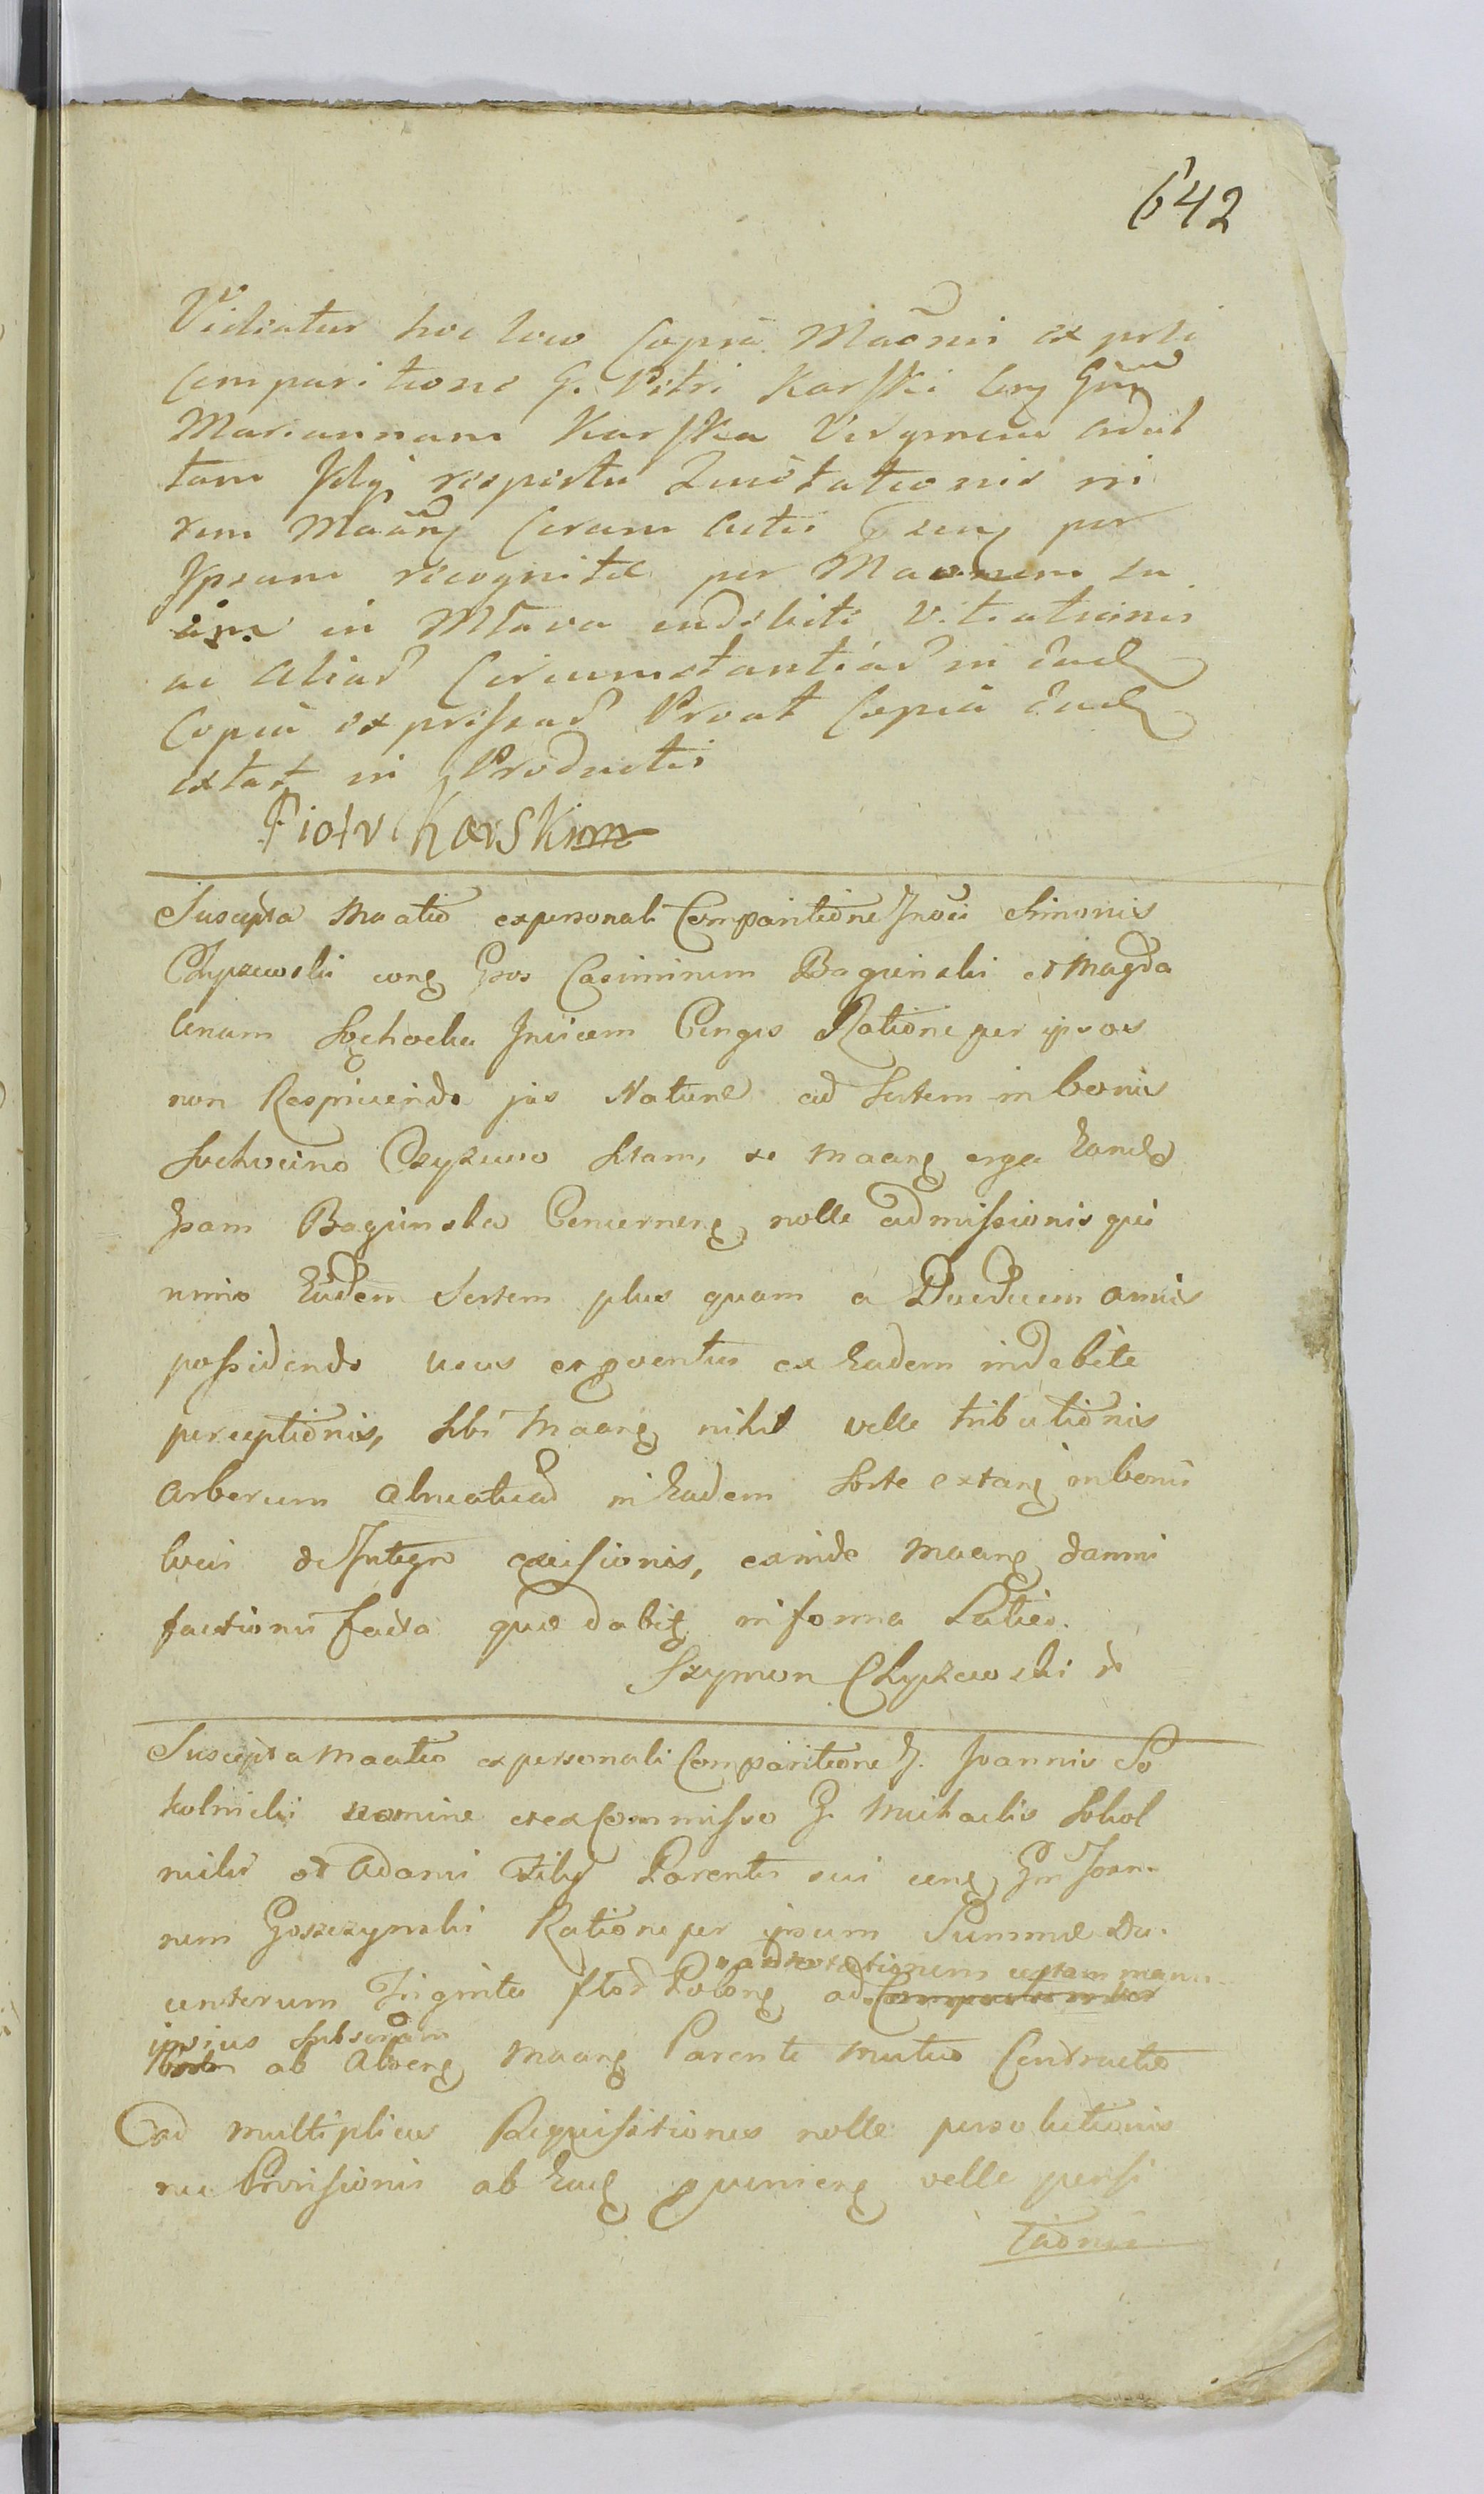 642
Vidiatur hoc loco Copia Maõnis ex prli
Comparitione G. Petri Karski Crg Gnam
Mariannam Karska Virginem adul
tam respectu Quietationis in
rem Maang Coram Actis per
Ipsam recognitæ per Maonem su
am in Mlava indebiti Vitiationis
ac aliar Circumstantiar in Ead
Copia expressar Prout Copia Ead
extat in Productis
Piotr Karski mp
Suscepta Maatio expersonali Comparitione Gnosi Simonis
Chyzewski cong Gnos Casimirum Baginski et Magda
lenam Sochocka Invicem Conges Ratione per ipsos
non Respiciendo jus Naturæ ad Sortem in bonis
Sochocino Czyzewo sitam, se maang erga Eand
Ipsam Baginska Concerneng nolle admissionis qui
nimo Eadem Sortem plus quam a Duodecem annis
possidendo usus et proventus ex Eadem indebite
perceptionis, sibi Maang nihil velle tributionis
Arborum alneatiad in Eadem Sorte extang in bonis
locis de Integro excisionis, exinde maang damni
factionis facta quæ dabit in forma Latiori.
Szymon Chyzewski
Suscepta Maatio expersonali Comparitione G. Joannis So
kolnicki nomine et ex Commisso G. Michaelis Sokol
nicki et Adami Filij Parentis sui cong Gm Joan-
nem Goszczynski Ratione per ipsum Summæ Du-
centorum Triginta flor Polong ad Compartimbor
adnotationem certam manu
ipsius Subscriptam
ab Actoreng Maang Parente mutuo Contractæ
ad multiplices Requisitiones nolle persolutionis
nec Provisionis ab Ead provenieng velle pensi
taõnis